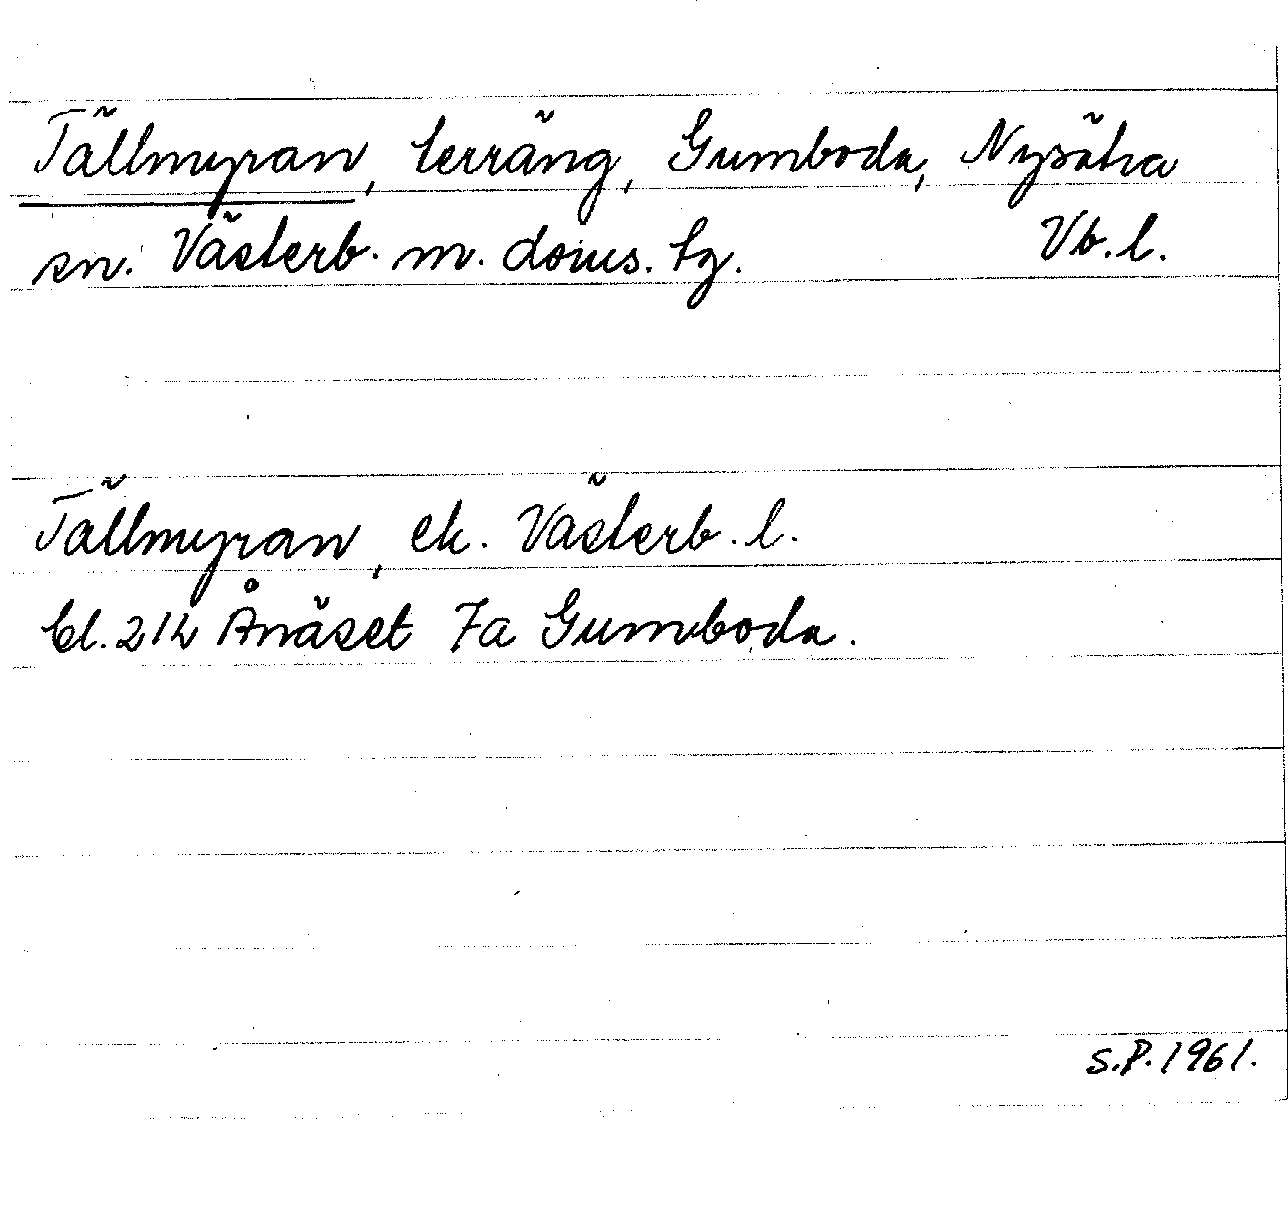 Tällmyran, terräng, Gumboda, Nysätra
sn. Västerb. m. doms. tg. Vb. l.
Tällmyran, ek. Västerb. l.
bl. 21h Ånäset 7a Gumboda.
S.P. 1961.